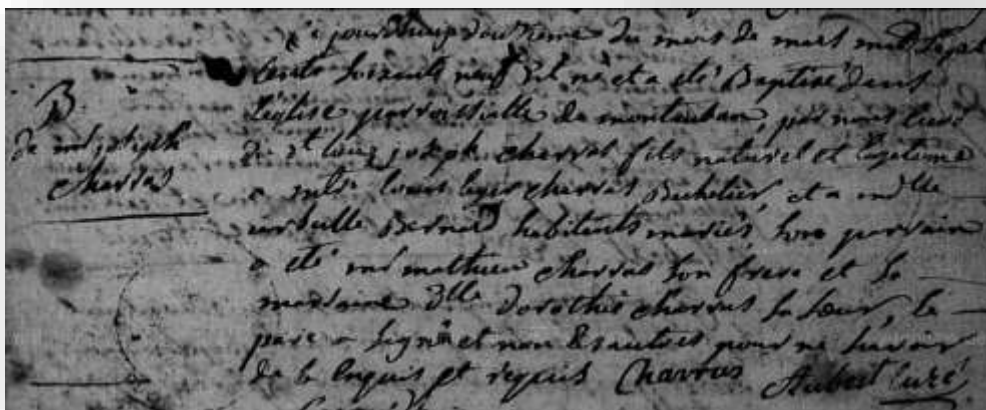 B
de mr joseph
charras
ce jourdhuy douzieme du mois de mars mil sept
cents soixante neuf est né et a eté Baptisé dans
l'église parroissialle de montauban, par nous curé
du st lieu, joseph charras fils naturel et légitime
a mr louis charras Bachelier, et a mlle
Bernard habitants mariés, son parrain
a eté mr mathieu charras son frere et sa
marraine dlle dorothée charras sa soeur, le
pere a signé et non les autres pour ne savoir
de ce enquis et requis Charras Aubert curé